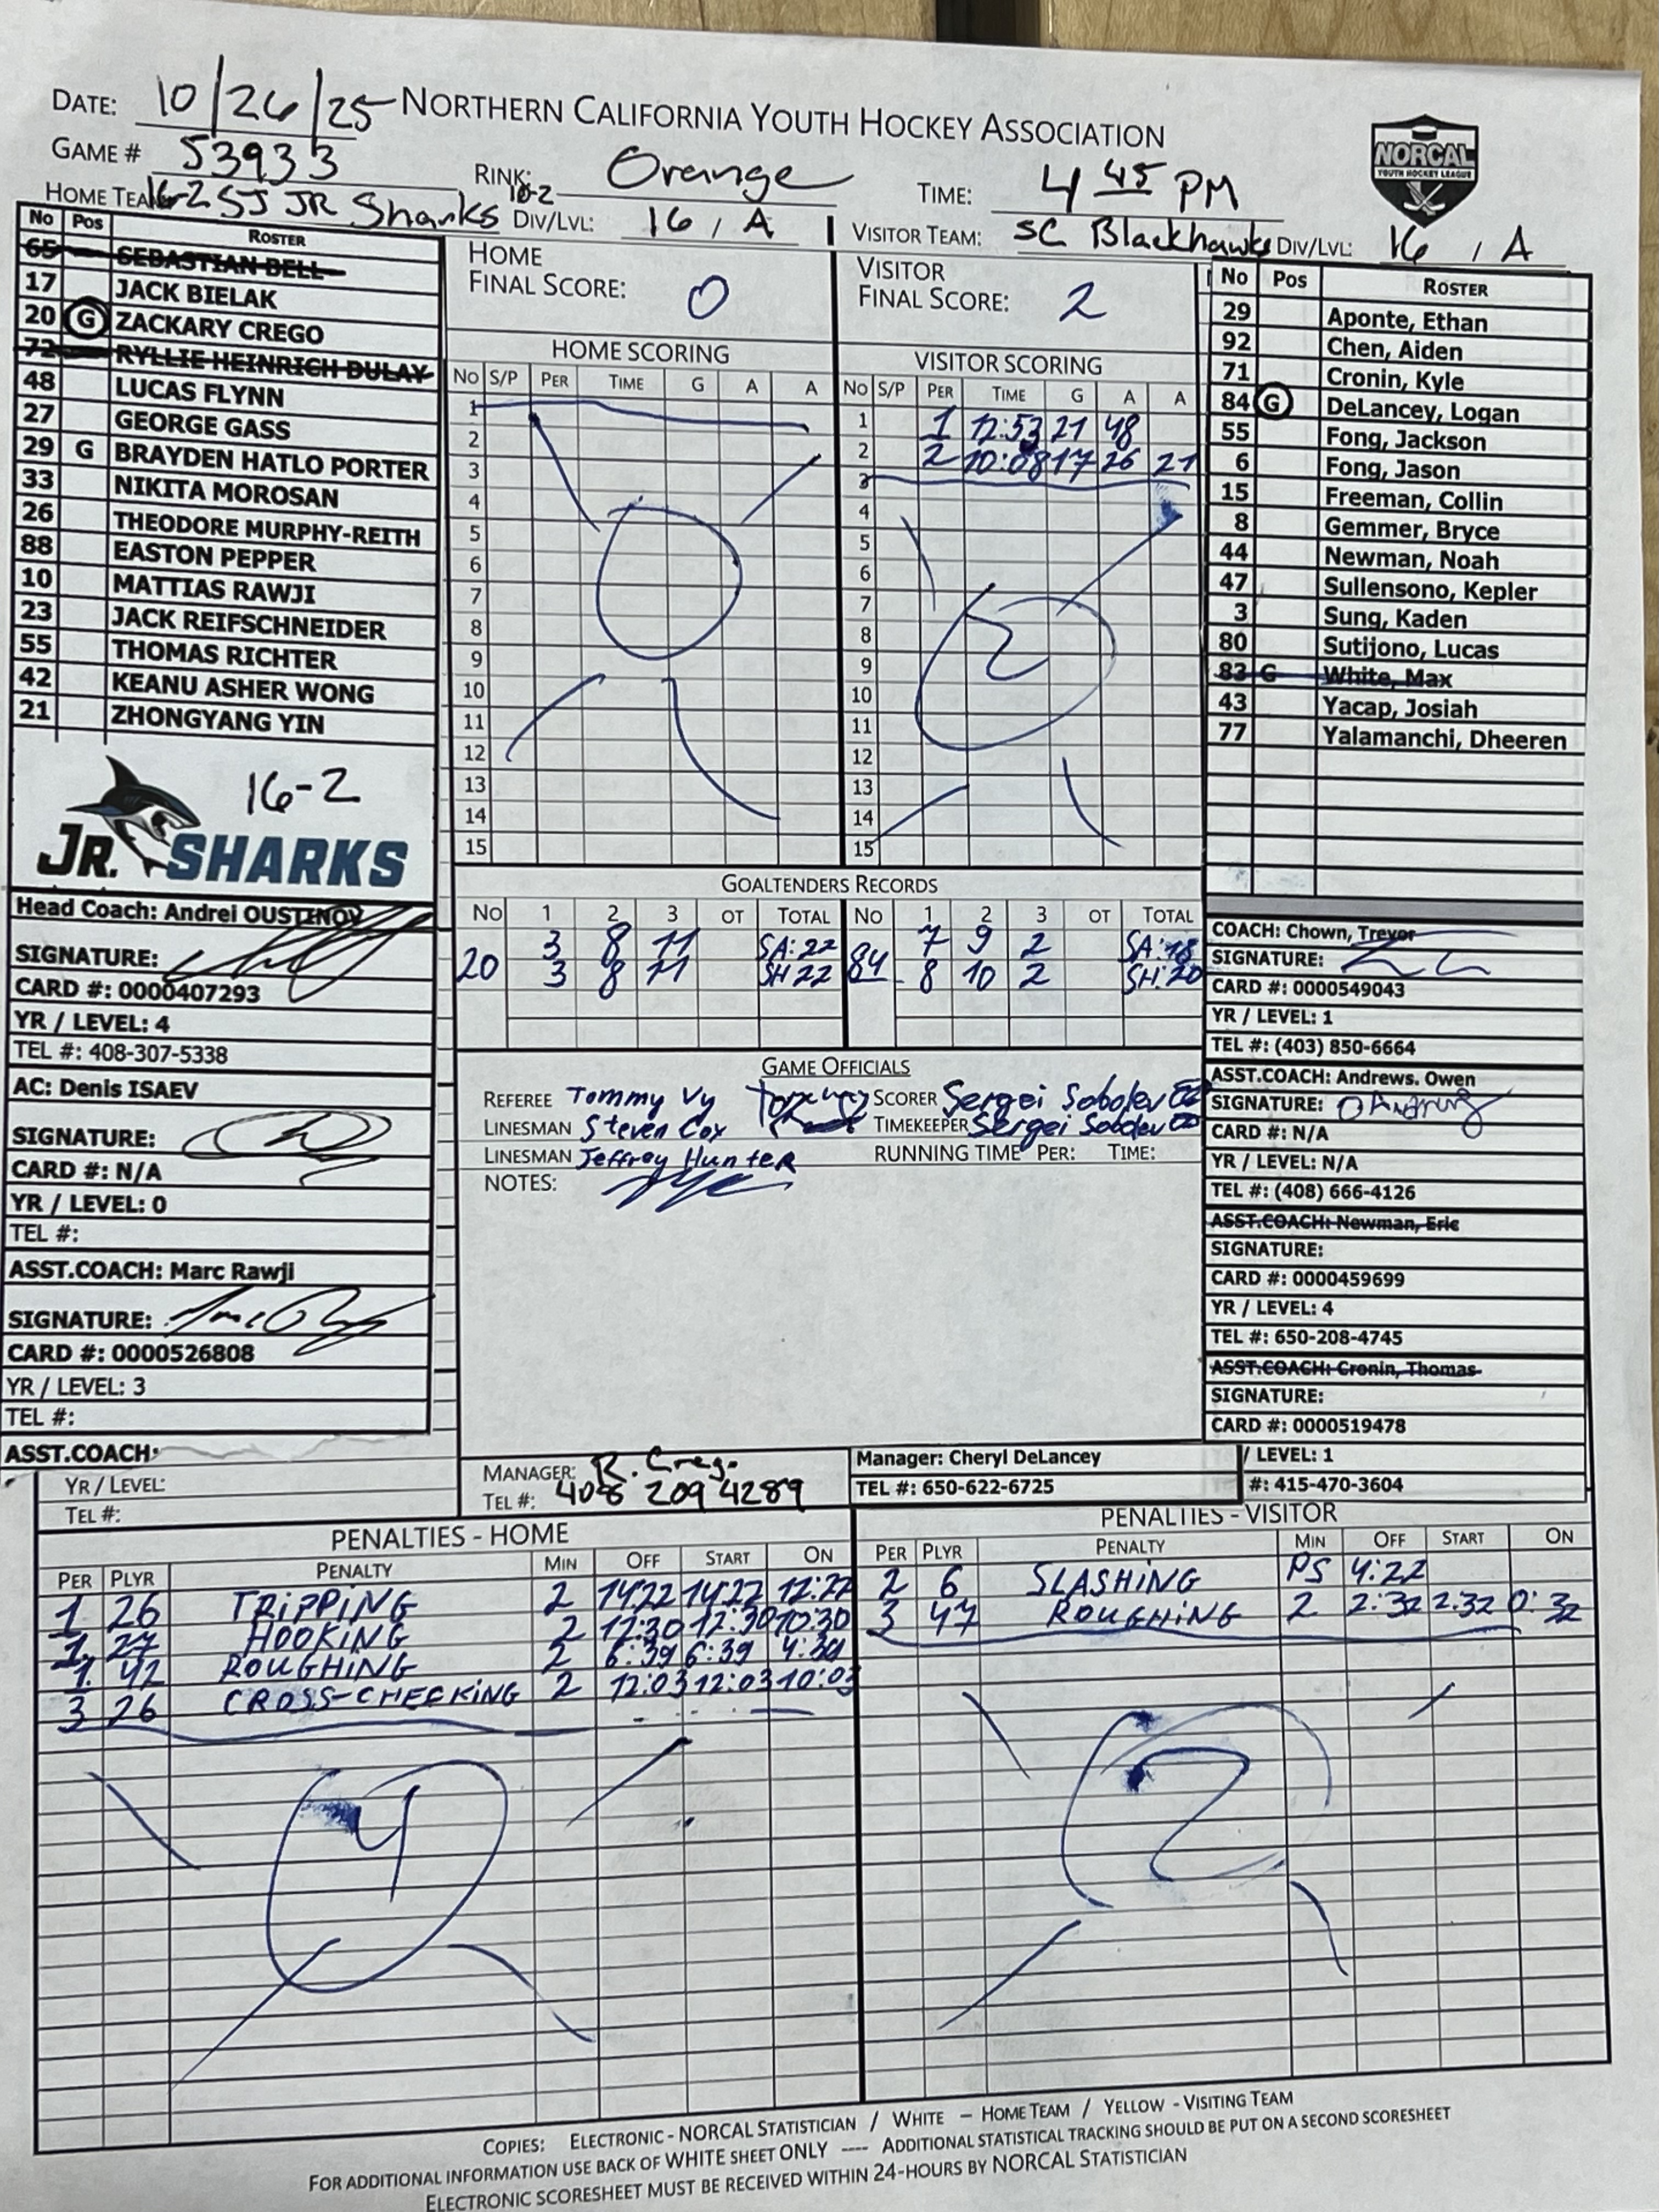 DATE: 10/26/25 NORTHERN CALIFORNIA YOUTH HOCKEY ASSOCIATION
NORCAL
YOUTH HOCKEY LEAGUE
GAME # 53933 RINK: Orange TIME: 4 45 PM
HOME TEAM 16-2 SJ JR Sharks 16-2 DIV/LVL: 16 / A VISITOR TEAM: SC Blackhawks DIV/LVL: 16 / A
No Pos ROSTER
65 SEBASTIAN BELL
17 JACK BIELAK
20 G ZACKARY CREGO
72 RYLLIE HEINRICH DULAY
48 LUCAS FLYNN
27 GEORGE GASS
29 G BRAYDEN HATLO PORTER
33 NIKITA MOROSAN
26 THEODORE MURPHY-REITH
88 EASTON PEPPER
10 MATTIAS RAWJI
23 JACK REIFSCHNEIDER
55 THOMAS RICHTER
42 KEANU ASHER WONG
21 ZHONGYANG YIN
16-2
JR. SHARKS
HOME
FINAL SCORE: 0
VISITOR
FINAL SCORE: 2
HOME SCORING
No S/P PER TIME G A A
1
2
3
4
5
6
7
8
9
10
11
12
13
14
15
0
VISITOR SCORING
No S/P PER TIME G A A
1 1 12:53 21 48
2 2 10:08 17 26 21
3
4
5
6
7
8
9
10
11
12
13
14
15
2
No Pos ROSTER
29 Aponte, Ethan
92 Chen, Aiden
71 Cronin, Kyle
84 G DeLancey, Logan
55 Fong, Jackson
6 Fong, Jason
15 Freeman, Collin
8 Gemmer, Bryce
44 Newman, Noah
47 Sullensono, Kepler
3 Sung, Kaden
80 Sutijono, Lucas
83 G White, Max
43 Yacap, Josiah
77 Yalamanchi, Dheeren
GOALTENDERS RECORDS
No 1 2 3 OT TOTAL No 1 2 3 OT TOTAL
3 8 11 SA: 22 7 9 2 SA: 18
20 3 8 11 SH 22 84 8 10 2 SH: 20
Head Coach: Andrei OUSTINOV
SIGNATURE:
CARD #: 0000407293
YR / LEVEL: 4
TEL #: 408-307-5338
AC: Denis ISAEV
SIGNATURE:
CARD #: N/A
YR / LEVEL: 0
TEL #:
ASST.COACH: Marc Rawji
SIGNATURE:
CARD #: 0000526808
YR / LEVEL: 3
TEL #:
ASST.COACH:
YR / LEVEL:
TEL #:
GAME OFFICIALS
REFEREE Tommy Vy SCORER Sergei Sobolev
LINESMAN Steven Cox TIMEKEEPER Sergei Sobolev
LINESMAN Jeffrey Hunter RUNNING TIME PER: TIME:
NOTES:
MANAGER: R. Crego
TEL #: 408 209 4289
Manager: Cheryl DeLancey
TEL #: 650-622-6725
COACH: Chown, Trevor
SIGNATURE:
CARD #: 0000549043
YR / LEVEL: 1
TEL #: (403) 850-6664
ASST.COACH: Andrews. Owen
SIGNATURE:
CARD #: N/A
YR / LEVEL: N/A
TEL #: (408) 666-4126
ASST.COACH: Newman, Eric
SIGNATURE:
CARD #: 0000459699
YR / LEVEL: 4
TEL #: 650-208-4745
ASST.COACH: Cronin, Thomas
SIGNATURE:
CARD #: 0000519478
/ LEVEL: 1
#: 415-470-3604
PENALTIES - HOME
PER PLYR PENALTY MIN OFF START ON
1 26 TRIPPING 2 14:22 14:22 12:22
1 27 HOOKING 2 12:30 12:30 10:30
1 42 ROUGHING 2 6:39 6:39 4:39
3 26 CROSS-CHECKING 2 12:03 12:03 10:03
4
PENALTIES - VISITOR
PER PLYR PENALTY MIN OFF START ON
2 6 SLASHING PS 4:22
3 47 ROUGHING 2 2:32 2:32 0:32
2
COPIES: ELECTRONIC - NORCAL STATISTICIAN / WHITE – HOME TEAM / YELLOW - VISITING TEAM
FOR ADDITIONAL INFORMATION USE BACK OF WHITE SHEET ONLY ---- ADDITIONAL STATISTICAL TRACKING SHOULD BE PUT ON A SECOND SCORESHEET
ELECTRONIC SCORESHEET MUST BE RECEIVED WITHIN 24-HOURS BY NORCAL STATISTICIAN